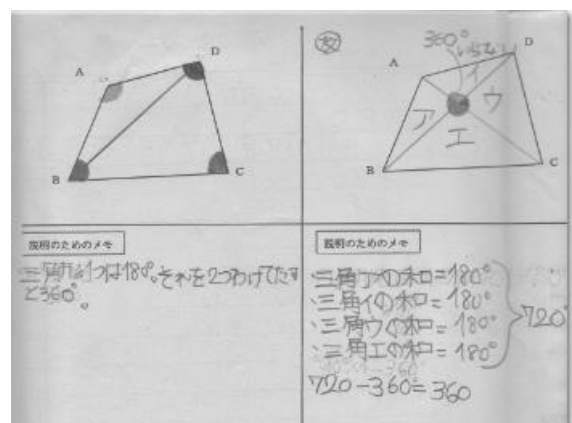 A
D
B
C
友
360°
いらない
A
D
ア
イ
ウ
エ
B
C
説明のためのメモ
三角形1つは180°。それを2つわけてたす
と360°。
説明のためのメモ
・三角アの和=180°
・三角イの和=180°
・三角ウの和=180°
・三角エの和=180°
720°
720-360=360